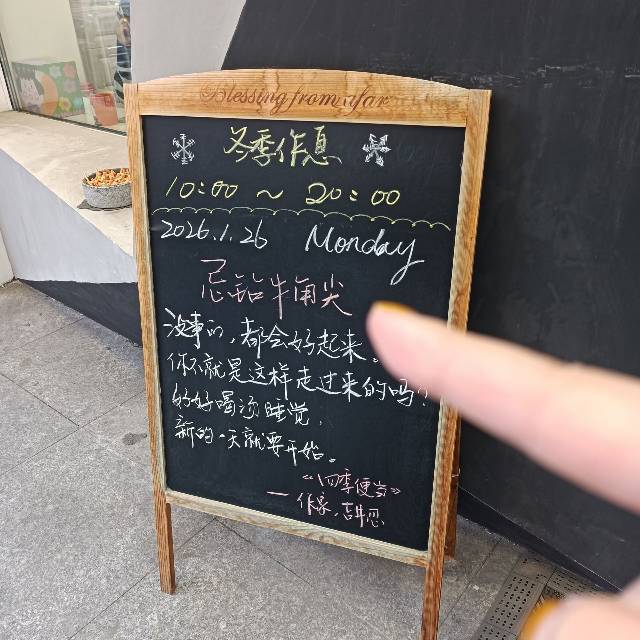 Blessing from afar
冬季作息
10:00 ~ 20:00
2026.1.26 Monday
忌钻牛角尖
没事的,都会好起来。
你不就是这样走过来的吗?
好好喝汤睡觉,
新的一天就要开始。
《四季便当》
— 作家,吉井忍